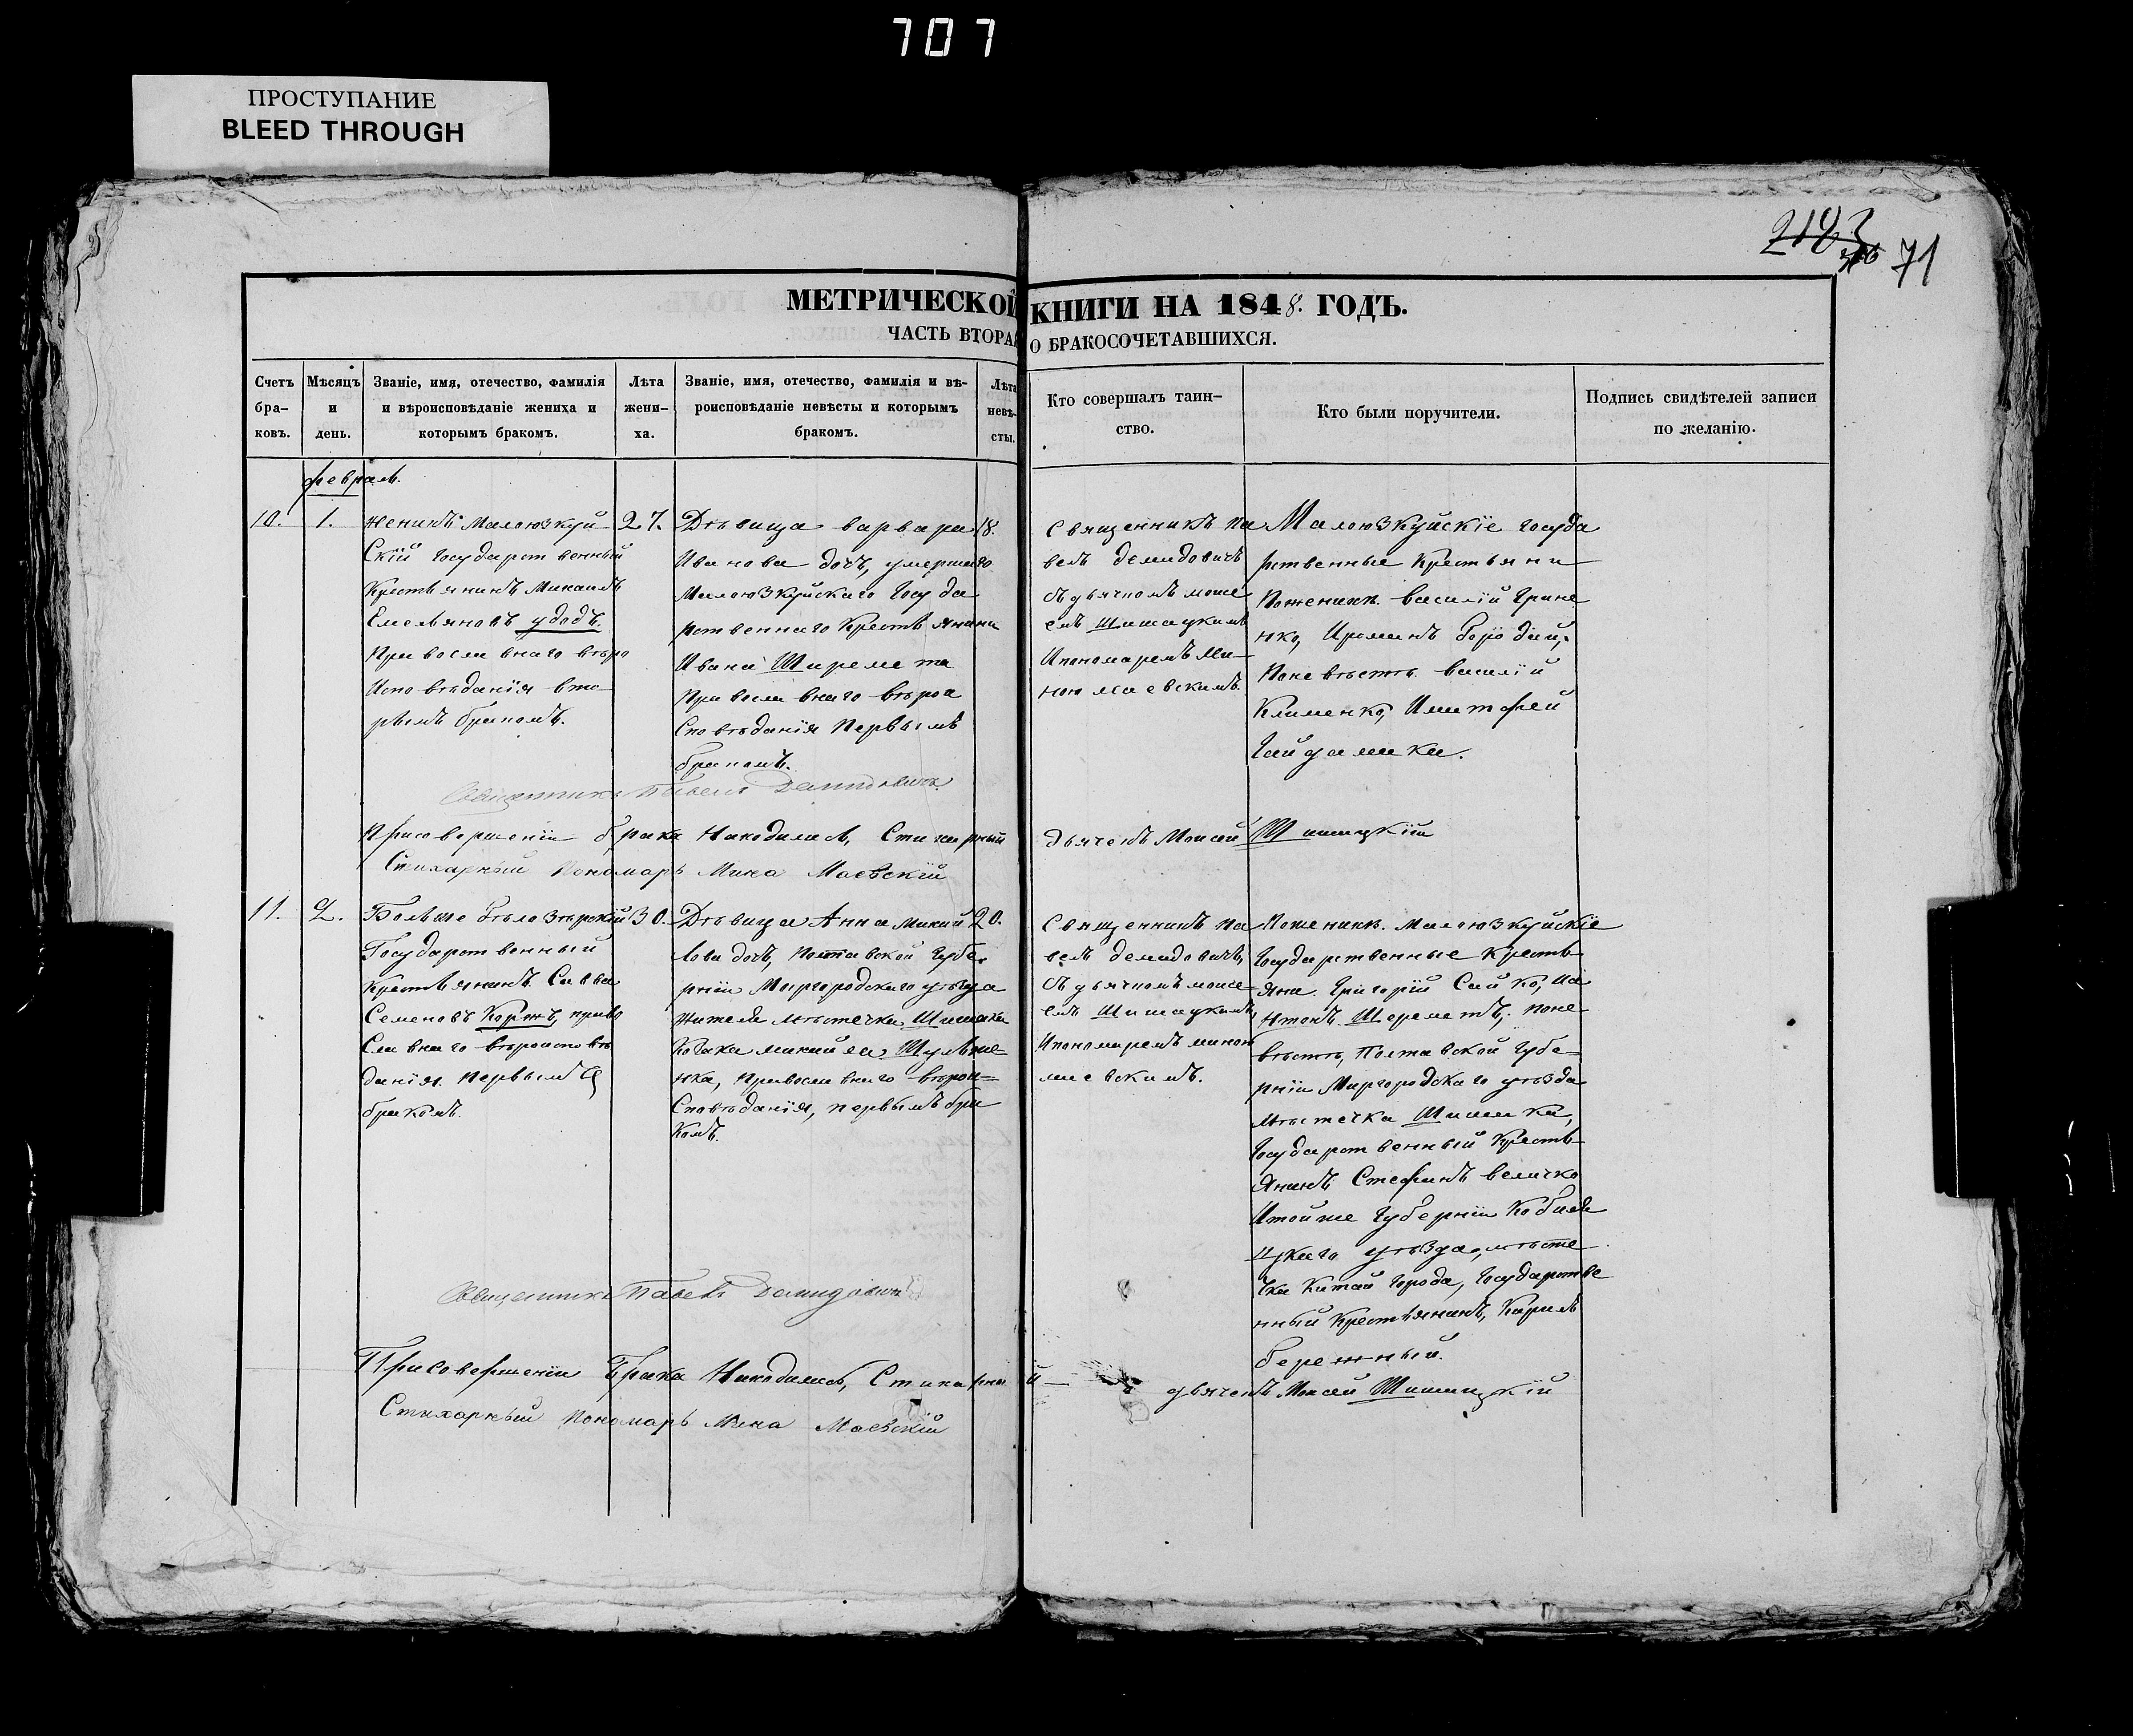 707
ПРОСТУПАНИЕ
BLEED THROUGH
2183
71
МЕТРИЧЕСКОЙ КНИГИ НА 1848. ГОДЪ.
ЧАСТЬ ВТОРАЯ О БРАКОСОЧЕТАВШИХСЯ.
Счетъ бра-ковъ.
Мѣсяцъ и день.
Званіе, имя, отечество, фамилія и вѣроисповѣданіе жениха и которымъ бракомъ.
Лѣта жени-ха.
Званіе, имя, отечество, фамилія и вѣ-роисповѣданіе невѣсты и которымъ бракомъ.
Лѣта невѣ-сты.
Кто совершалъ таин-ство.
Кто были поручители.
Подпись свидѣтелей записи по желанію.
февраль.
10.
1.
Женихъ Малоюзкуй
Скій Государственный
Крестьянинъ Михаилъ
Емельяновъ Удодъ.
Православнаго вѣро
Исповѣданія вто
рымъ бракомъ.
27.
Дѣвица варвара
Иванова дочь, умершаго
Малоюзкуйскаго Госуда
рственнаго Крестьянина
Ивана Шеремета
Православнаго вѣрои
Сповѣданія Первымъ
бракомъ.
18.
Священникъ Па
велъ демидовичъ
съ дьячкомъ моисе
емъ Шишацкимъ
Ипономаремъ Ми
ною маевскимъ.
Малоюзкуйскіе Госуда
рственные Крестьяни
Поженихѣ. василій Грине
нко,
Поневѣстѣ. василій
Клименко,
Гайдамака.
Священникъ Павелъ Демидовичъ
Присовершеніи брака Находились, Стихарный дьячекъ Моисей Шишацкій
Стихарный Пономарь Мина Маевскій
11.
2.
Больше бѣлозѣрскій
Государственный
Крестьянинъ Савва
Семеновъ Коржъ, право
Славнаго вѣроисповѣ
данія. Первымъ
бракомъ.
30.
Дѣвица Анна Михай
лова дочь, Полтавской Губе
рніи Миргородскаго уѣзда
Жителя мѣстечка Шишака
Козака михайла
нка, Православнаго вѣрои=
Сповѣданія, первымъ бра
Комъ.
20.
Священникъ Па
велъ демидовичъ,
Съ дьячкомъ моисе
емъ Шишацкимъ,
Ипономаремъ миною
маевскимъ.
Поженихѣ. Малоюзкуйскіе
Государственные Кресть
яне. Григорій Сайко, Иа
нтонъ Шереметъ, поне
вѣстѣ, Полтавской Губе=
рніи Миргородскаго уѣзда
мѣстечка Шишака,
Государственный Кресть
янинъ Стефанъ величко
Итойже Губерніи Кобиля
цкаго уѣзда, мѣсте
чка Китай города, Государстве
нный Крестьянинъ, Карпъ
бережный.
Священникъ Павелъ Демидовичъ
Присовершеніи Брака Находились, Стихарный дьячекъ Моисей Шишацкій
Стихарный Пономарь Мина Маевскій